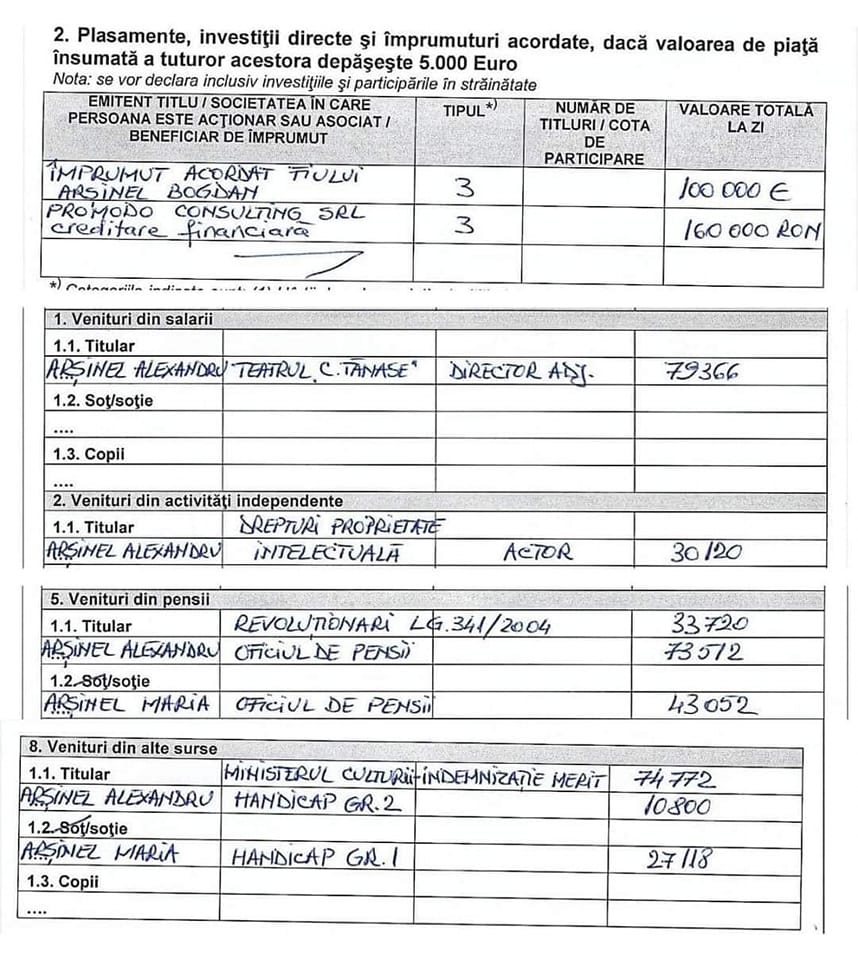 2. Plasamente, investiţii directe şi împrumuturi acordate, dacă valoarea de piaţă
însumată a tuturor acestora depăşeşte 5.000 Euro
Nota: se vor declara inclusiv investiţiile şi participările în străinătate
EMITENT TITLU / SOCIETATEA ÎN CARE
PERSOANA ESTE ACŢIONAR SAU ASOCIAT /
BENEFICIAR DE ÎMPRUMUT
TIPUL*)
NUMĂR DE
TITLURI / COTA
DE
PARTICIPARE
VALOARE TOTALĂ
LA ZI
ÎMPRUMUT ACORDAT FIULUI
ARȘINEL BOGDAN 3 100 000 €
PROMODO CONSULTING SRL
creditare financiară 3 160 000 RON
1. Venituri din salarii
1.1. Titular
ARȘINEL ALEXANDRU TEATRUL „C. TĂNASE" DIRECTOR ADJ. 79366
1.2. Soţ/soţie
....
1.3. Copii
....
2. Venituri din activităţi independente
1.1. Titular DREPTURI PROPRIETATE
ARȘINEL ALEXANDRU INTELECTUALĂ ACTOR 30120
5. Venituri din pensii
1.1. Titular REVOLUȚIONARI LG.341/2004 33720
ARȘINEL ALEXANDRU OFICIUL DE PENSII 73512
1.2. Soţ/soţie
ARȘINEL MARIA OFICIUL DE PENSII 43052
8. Venituri din alte surse
1.1. Titular MINISTERUL CULTURII-INDEMNIZAȚIE MERIT 74772
ARȘINEL ALEXANDRU HANDICAP GR.2 10800
1.2. Soţ/soţie
ARȘINEL MARIA HANDICAP GR.1 27118
1.3. Copii
....